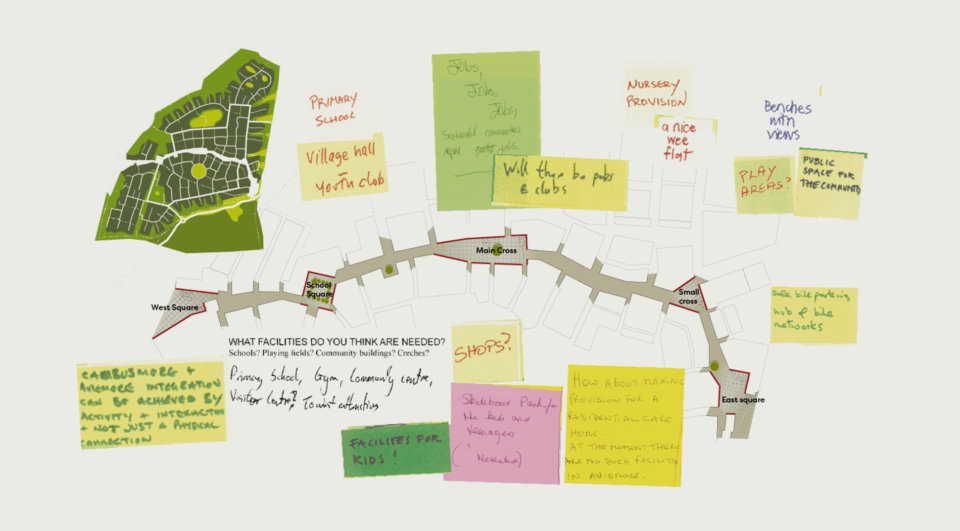 PRIMARY
SCHOOL
Village hall
-
youth club
Jobs,
Jobs,
Jobs,
Will there be pubs
& clubs
NURSERY
PROVISION
a nice
wee
flat
Benches
with
views
PLAY
AREAS?
PUBLIC
SPACE FOR
THE COMMUNITY
Main Cross
School
Square
West Square
Small
cross
East square
Safe bike parking
hub & bike
networks
WHAT FACILITIES DO YOU THINK ARE NEEDED?
Schools? Playing fields? Community buildings? Creches?
Primary School, Gym, Community centre,
Visitor Centre? Tourist attractions
SHOPS?
CAMBUSMORE +
AVIEMORE INTEGRATION
CAN BE ACHIEVED BY
ACTIVITY + INTERACTION
+ NOT JUST A PHYSICAL
CONNECTION
FACILITES FOR
KIDS!
Skateboard Park for
the kids and
teenagers
HOW ABOUT MAKING
PROVISION FOR A
RESIDENTIAL CARE
HOME.
AT THE MOMENT THERE
ARE NO SUCH FACILITY
IN AVIEMORE.